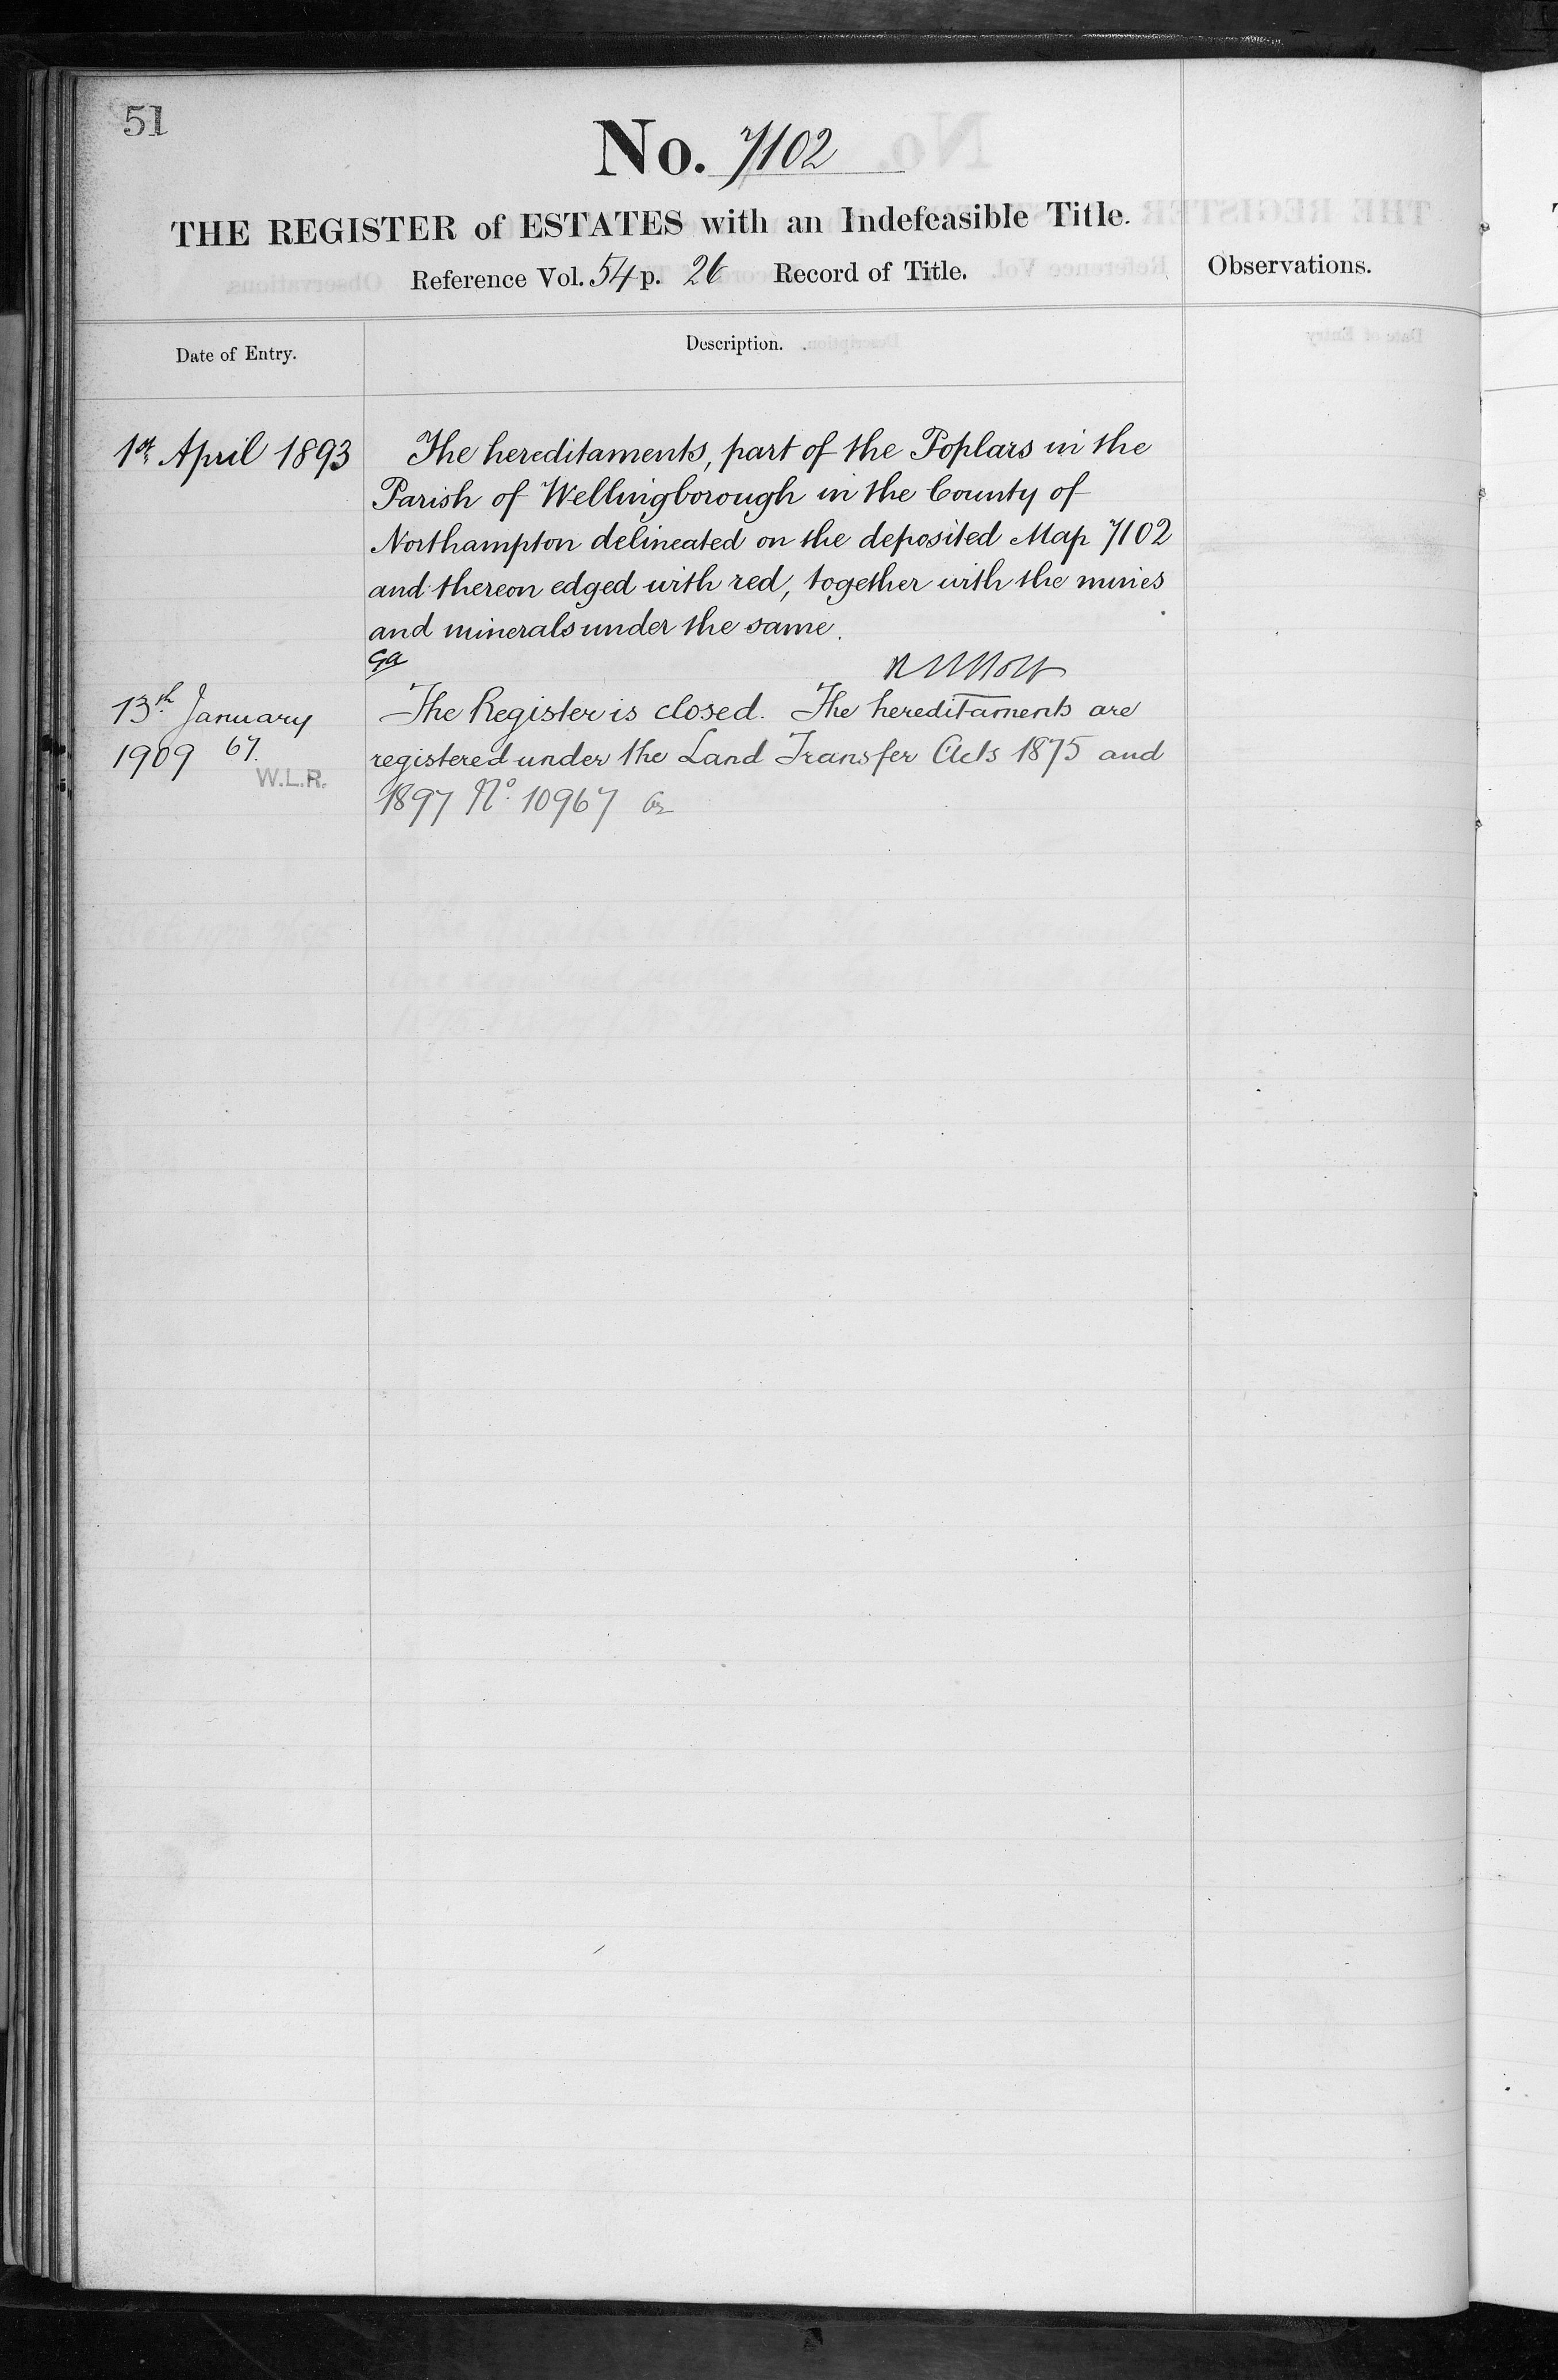 51
No. 7102
THE REGISTER of ESTATES with an Indefeasible Title.
Reference Vol. 54 p. 26 Record of Title.
Observations.
Date of Entry.
Description.
1st April 1893
The hereditaments, part of the Poplars in the
Parish of Wellingborough in the County of
Northampton delineated on the deposited Map 7102
and thereon edged with red, together with the mines
and minerals under the same.
13th January
1909 67.
W.L.R.
The Register is closed. The hereditaments are
registered under the Land Transfer Acts 1875 and
1897 No. 10967